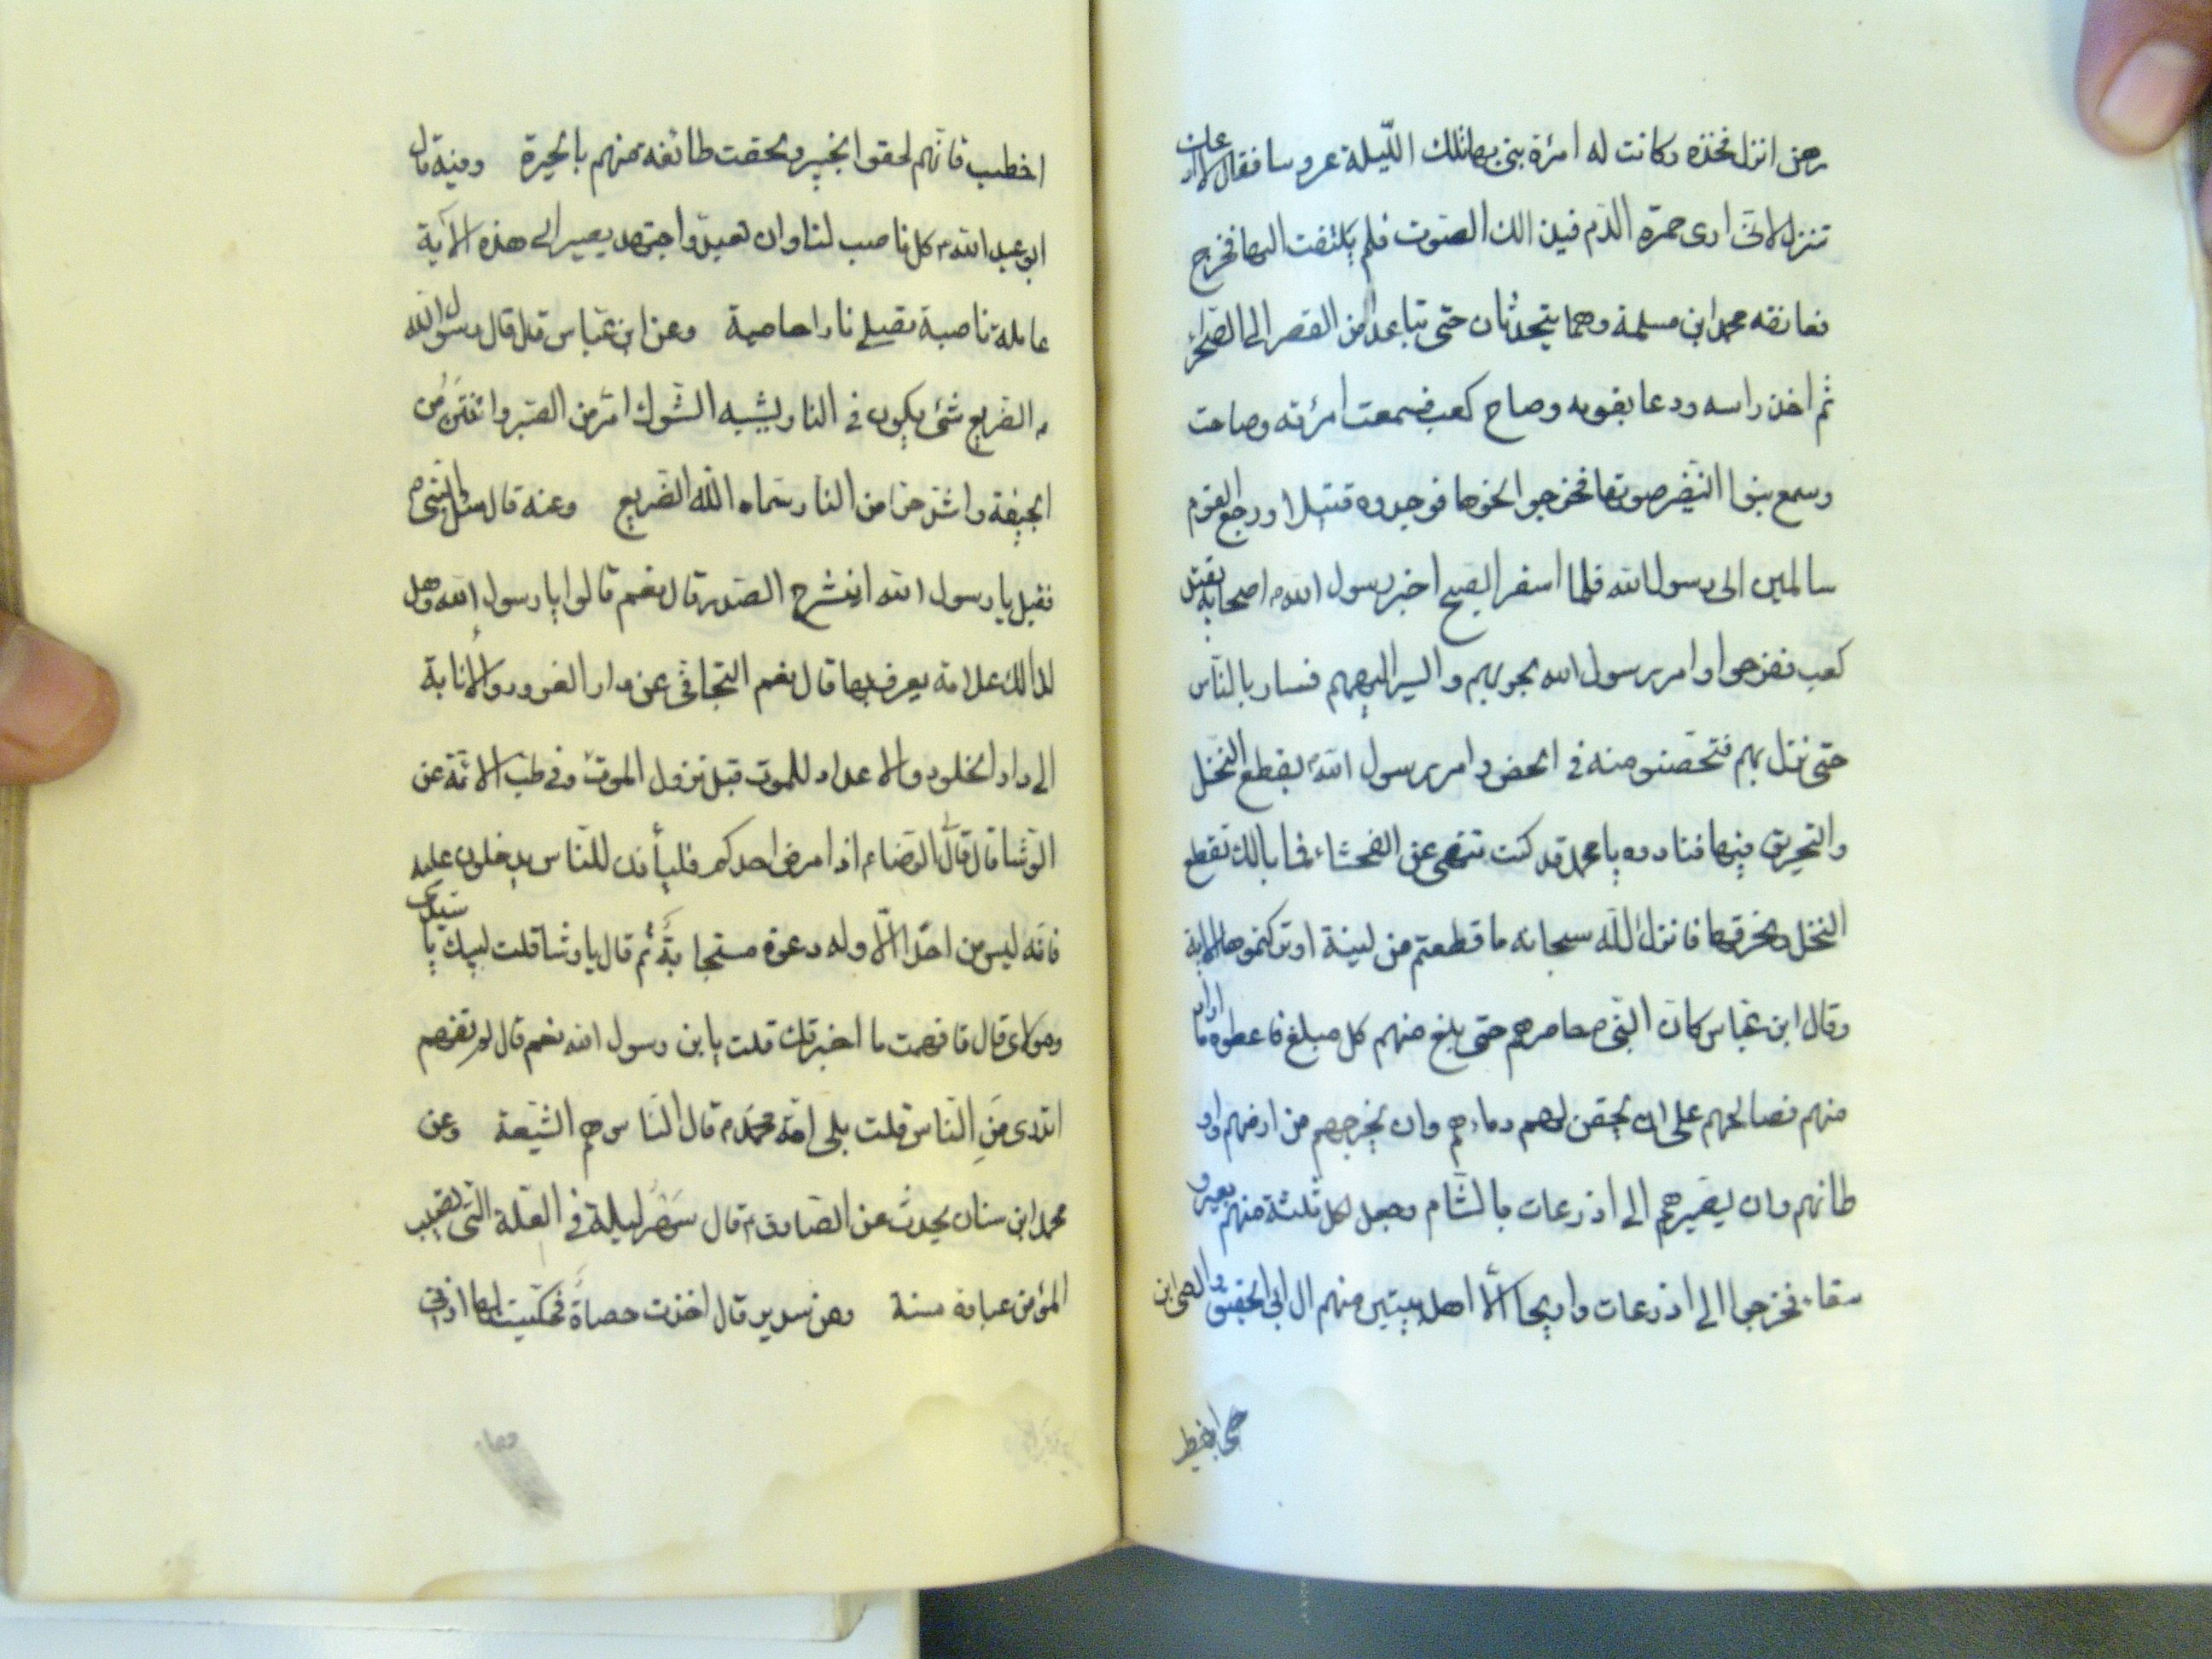 رهن انزل فخذه وكانت له امرئة بنى بها تلك اللّيلة عروسا فقال لا ادعك
تنزل لانّى ارى حمرة الدّم فى ذلك الصّوت فلم يلتفت اليها فخرج
فعانقه محمد ابن مسلمة وهما يتحدّثان حتّى تباعدا من القصر الى الصّحراء
ثم اخذ راسه ودعا بقومه وصاح كعب فسمعت امرئته وصاحت
وسمع بنوا النّضير صوتها فخرجوا نحوها فوجدوه قتيلا ورجع القوم
سالمين الى رسول الله فلما اسفر الصّبح اخبر رسول الله م اصحابه بقتل
كعب ففرحوا وامر رسول الله بحربهم والسير اليهم فسار بالنّاس
حتى نزل بهم فتحصّنوا منه فى الحصن وامر رسول الله م بقطع النّخل
والتحريق فيها فنادوه يا محمد قد كنت تنهى عن الفحشاء فما بالك تقطع
النخل وتحرقها فانزل اللّه سبحانه ما قطعتم من لينة او تركتموها الاية
وقال ابن عبّاس كان النّبى م حاصرهم حتى بلغ منهم كل مبلغ فاعطوه ما اراد
منهم فصالحهم على ان يحقن لهم دماءهم وان يخرجهم من ارضهم واو
طانهم وان يصيرهم الى اذرعات بالشّام وجعل لكل ثلثة منهم بعيرو
سقاء فخرجوا الى اذرعات واريحا الّا اهل بيتين منهم ال ابى الحقيق وال حى ابن
حى ابن اخطب
اخطب فانّهم لحقوا بخيبر ولحقت طائفة منهم بالحيرة وفيه قال
ابو عبد الله م كل ناصب لنا وان تعبّد واجتهد يصير الى هذه الآية
عاملة ناصبة تصلى نارا حامية وعن ابن عبّاس قال قال رسول الله
م الضّريع شئ يكون فى النار يشبه الشّوك امرّ من الصّبر وانتن من
الجيفة واشدّ حرّا من النار سمّاه اللّه الضّريع وعنه قال سئل النّبى م
فقيل يا رسول الله اينشرح الصّدر قال نعم قالوا يا رسول الله وهل
لذالك علامة يعرف بها قال نعم التجافى عن دار الغرور والأنابة
الى دار الخلود والاعداد للموت قبل نزول الموت وفى طبّ الائمّة عن
الوشّا قال قال الرّضاء م اذا مرض احدكم فليأذن للنّاس يدخلون عليه
فانّه ليس من احد الّا وله دعوة مستجابة ثم قال يا وشّا قلت لبيك يا سيدى
ومولاى قال فافهمت ما اخبرتك قلت يا بن رسول الله نعم قال لم تفهم
اتدرى من النّاس قلت بلى امّة محمّد م قال النّاس هم الشّيعة وعن
محمد ابن سنان يحدث عن الصّادق م قال سهر ليلة فى العلّة التّى تصيب
المؤمن عبادة سنة وعن سدير قال اخذت حصاة فحككت بها اذنى